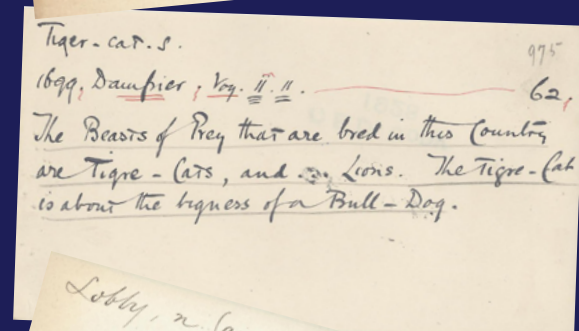 Tiger-cat. s.
975
1699, Dampier, Voy. II. II. 62,
The Beasts of Prey that are bred in this Country
are Tigre-Cats, and Lions. The Tigre-Cat
is about the bigness of a Bull-Dog.
Lobby, n.